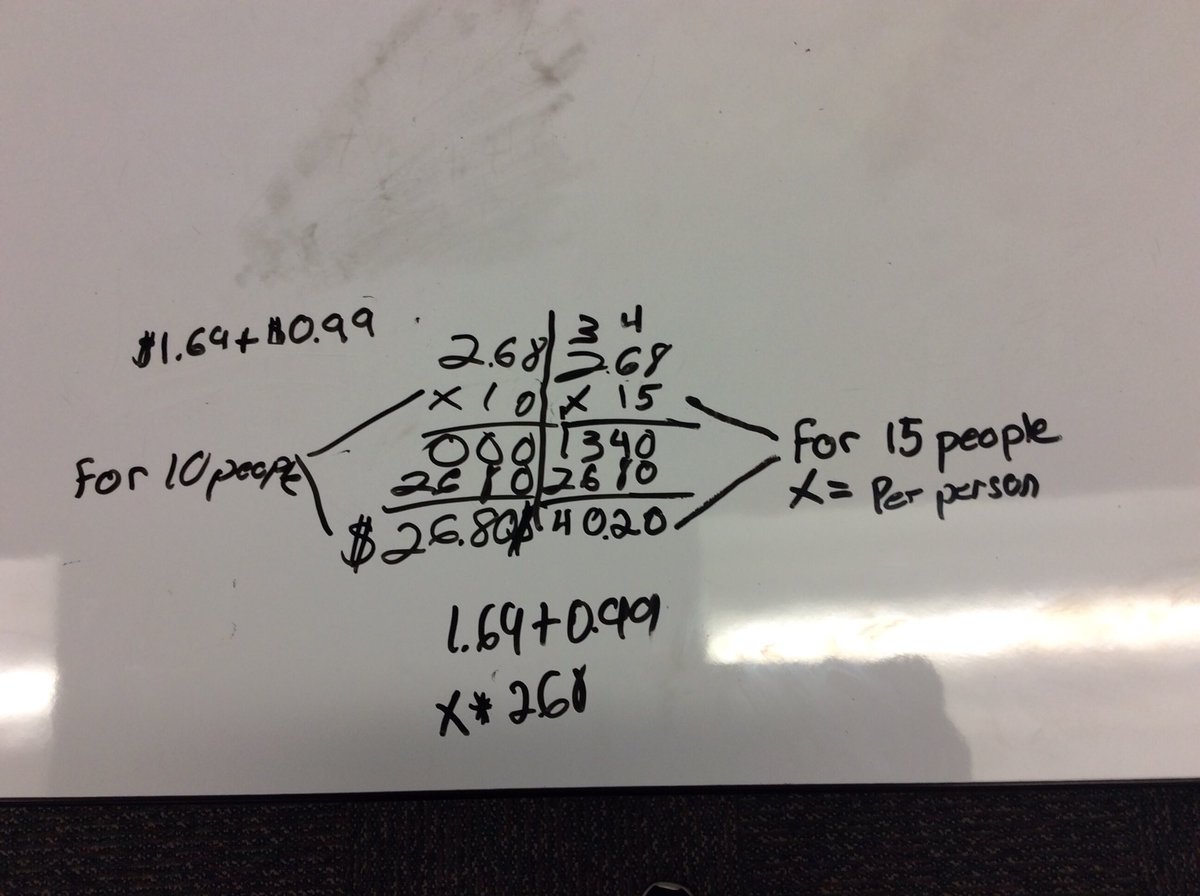 $1.69+$0.99
3 4
2.68 2.68
x 10 x 15
000 1340
2680 2680
$26.80 $40.20
For 10 people
For 15 people
x = Per person
1.69+0.99
x * 2.68